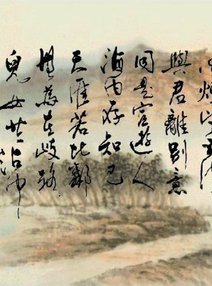 風烟望五津
與君離別意
同是宦遊人
海內存知己
天涯若比鄰
無為在歧路
兒女共沾巾